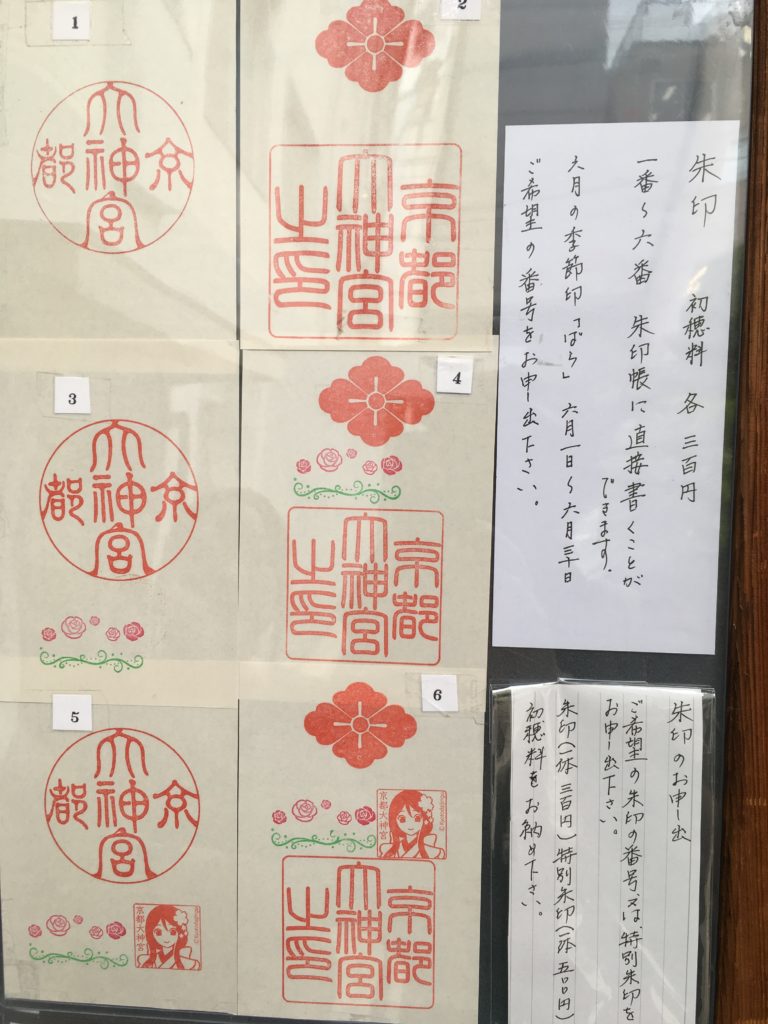 1
京都大神宮
2
京都
大神宮
之印
3
京都大神宮
4
京都
大神宮
之印
5
京都大神宮
京都大神宮
6
京都大神宮
京都
大神宮
之印
朱印　初穂料　各　三百円
一番〜六番　朱印帳に直接書くことが
できます。
六月の季節印「ばら」　六月一日〜六月三十日
ご希望の番号をお申し出下さい。
朱印のお申し出
ご希望の朱印の番号、又は、特別朱印を
お申し出下さい。
朱印(一体　三百円)特別朱印(一体　五百円)
初穂料をお納め下さい。